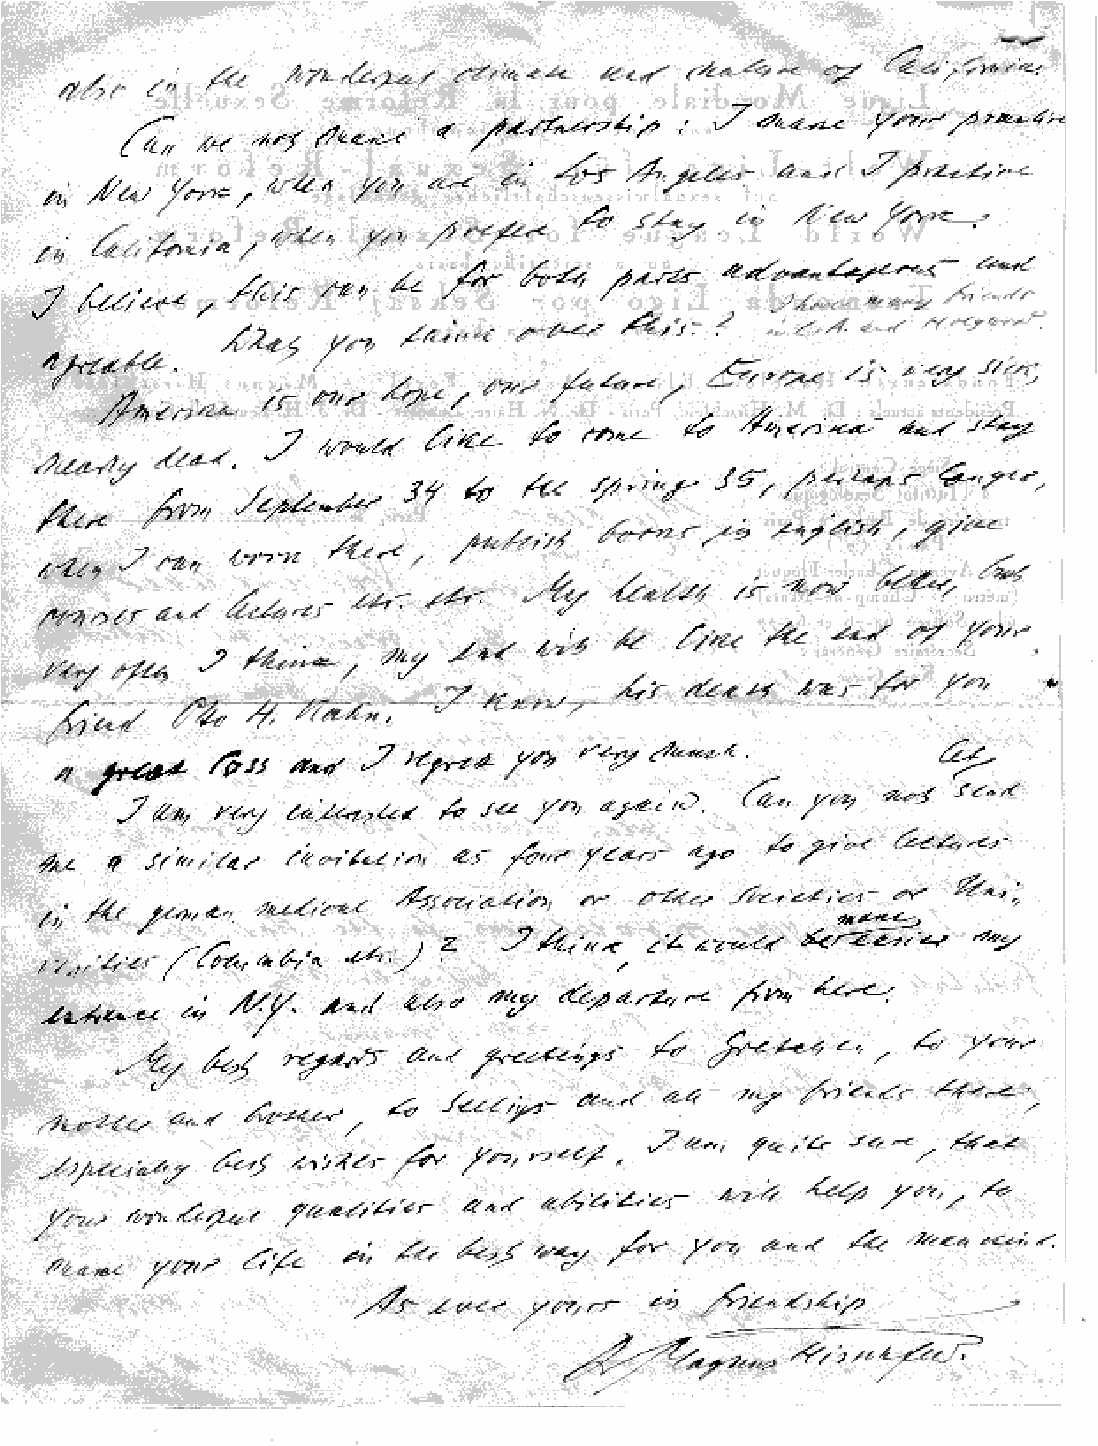 also in the wonderful climate and nature of California
Can we not make a partnership: I make your practice
in New York, when you are in Los Angeles and I practice
in California, when you prefer to stay in New York.
I believe, this can be for both parts advantageous and
agreable. What you think over this? I have many friends
in L.A. and Holywood.
America is our hope, our future, Europe is very sick,
nearly dead. I would like to come to America and stay
there from September 34 to the spring 35, perhaps longer,
when I can work there, publish books in english, give
courses and lectures etr. etr. My health is now better, but
very often I think, my end will be like the end of your
friend Otto H. Kahn. I know, his death was for you
a great loss and I regret you very much.
I am very interested to see you again. Can you not let send
me a similar invitation as four years ago to give lectures
in the german medical Association or other societies or Uni-
versities (Columbia etr.)? I think, it would make easier my
entrance in N.Y. and also my departure from here.
My best regards and greetings to Gretchen, to your
mother and brother, to Seeligs and all my friends there,
especially best wishes for yourself. I am quite sure, that
your wonderful qualities and abilities will help you, to
make your life in the best way for you and the mankind.
As ever yours in friendship
Dr Magnus Hirschfeld.